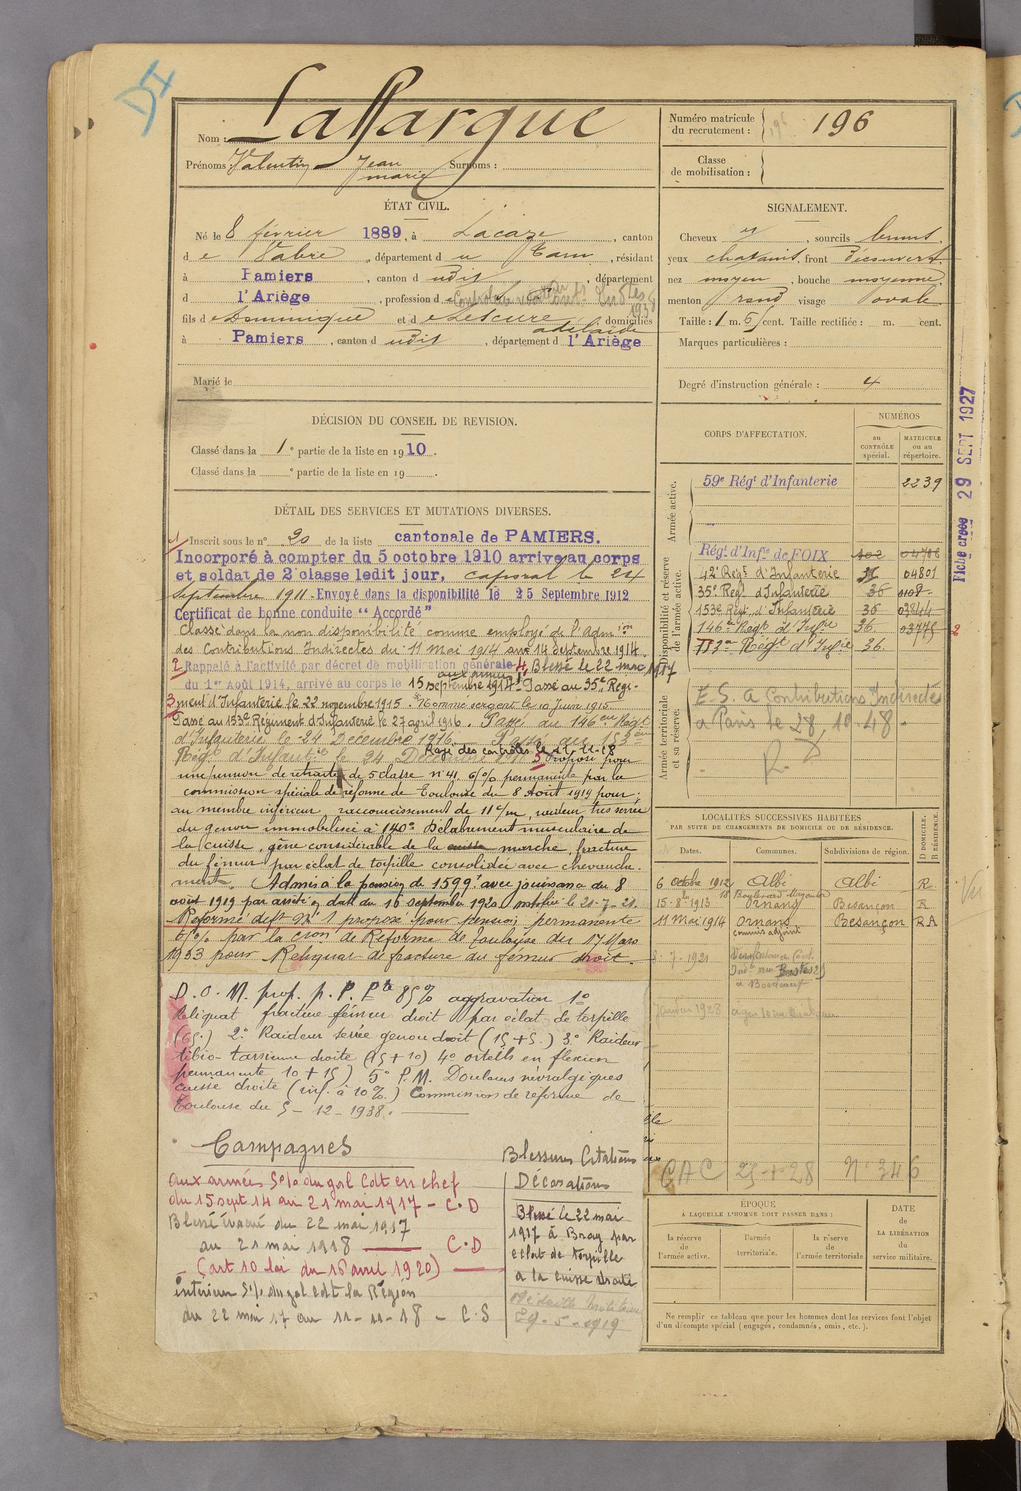 DI
Nom : Laffargue
Prénoms : Valentin Jean marie Surnoms :
Numéro matricule du recrutement : 196
Classe de mobilisation :
ÉTAT CIVIL.
Né le 8 février 1889, à Lacaze, canton
de Vabre, département du Tarn, résidant
à Pamiers, canton dudit, département
d l'Ariège, profession d
fils de Dominique et de Lescure adélaïde domiciliés
à Pamiers, canton dudit, département d l'Ariège
Marié le
SIGNALEMENT.
Cheveux et, sourcils bruns,
yeux chatains, front découvert
nez moyen, bouche moyenne,
menton rond visage ovale
Taille : 1 m. 65 cent. Taille rectifiée : m. cent.
Marques particulières :
Degré d'instruction générale : 4
DÉCISION DU CONSEIL DE REVISION.
Classé dans la 1e partie de la liste en 1910.
Classé dans la e partie de la liste en 19 .
DÉTAIL DES SERVICES ET MUTATIONS DIVERSES.
1 Inscrit sous le n° 20 de la liste cantonale de PAMIERS.
Incorporé à compter du 5 octobre 1910 arrivé au corps
et soldat de 2e classe ledit jour, caporal le 24
Septembre 1911 - Envoyé dans la disponibilité le 25 Septembre 1912
Certificat de bonne conduite "Accordé"
Classé dans la non disponibilité comme employé de l'Admion
des Contributions Indirectes du 11 Mai 1914 au 14 Septembre 1914.
2 Rappelé à l'activité par décret de mobilisation générale 4 Blessé le 22 mai 1917
du 1er Août 1914, arrivé au corps le 15 septembre 1914. Passé au 35e Régi-
aux armées
3 ment d'Infanterie le 22 novembre 1915. Nommé sergent le 10 Juin 1915
Passé au 153e Régiment d'Infanterie le 27 avril 1916. Passé au 146e Régt
d'Infanterie le 24 Décembre 1916. Passé au 153ème
Rég. d'Infanterie le 24 Décembre
Rayé des contrôles le
5 Proposé pour
une pension de retraite de 5 classe n° 41. 6% permanente par la
commission spéciale de réforme de Toulouse du 8 Août 1919 pour :
au membre inférieur raccourcissement de 11 c/m, raideur très serrée
du genou immobilisé à 140° Délabrement musculaire de
la cuisse, gêne considérable de la cuisse marche, fracture
du fémur par éclat de torpille consolidée avec chevauche-
ment. Admis à la pension de 1599f avec jouissance du 8
août 1919 par arrêté en date du 16 septembre 1920
Réformé déft N° 1 proposé pour pension permanente
65% par la Cion de Réforme de Toulouse du 17 Mars
1933 pour Reliquat de fracture du fémur droit.
D.O.M. prop. p. P. Pte 85% aggravation 1°
Reliquat fracture fémur droit par éclat de torpille
(65) 2° Raideur serrée genou droit (15 + 5) 3° Raideur
tibio-tarsienne droite (15 + 10) 4° orteils en flexion
permanente 10 + 15) 5° P.M. Douleurs névralgiques
cuisse droite (inf. à 10%) Commission de réforme de
Toulouse du 5-12-1938.
Campagnes
aux armées S/o du gal Cdt en chef
du 15 sept 14 au 21 mai 1917 - C.D
Blessé évacué du 22 mai 1917
au 21 mai 1918 C.D
(art 10 loi du 16 avril 1920)
intérieur S/o du gal cdt la Région
du 22 mai 17 au 11-11-18 - C.S
Blessures Citations
Décorations
Blessé le 22 mai
1917 à Bray par
éclat de torpille
à la cuisse droite
Médaille Militaire
29-5-1919
CORPS D'AFFECTATION.
NUMÉROS
au CONTRÔLE spécial.
MATRICULE ou au répertoire.
Armée active.
59e Régt d'Infanterie 2239
Disponibilité et réserve de l'armée active.
Régt d'Infie de FOIX
42e Régt d'Infanterie 04801
35e Regt d'Infanterie 36
153e Regt d'Infanterie 36 03844
146e Regt d'Infie 36 03775
153e Régt d'Infie 36.
Armée territoriale et sa réserve.
E.S. A Contributions Indirectes
à Paris le 28.10.48
Fiche créée 29 SEPT 1927
LOCALITÉS SUCCESSIVES HABITÉES
PAR SUITE DE CHANGEMENTS DE DOMICILE OU DE RÉSIDENCE.
Dates. Communes. Subdivisions de région. D DOMICILE. R RÉSIDENCE.
6 Octobre 1912 Albi Albi R
15-8-1913 Ornans Besançon R
11 Mai 1914 Ornans Besançon R A
commis adjoint
à Bordeaux
CAC N° 346
ÉPOQUE
À LAQUELLE L'HOMME DOIT PASSER DANS :
la réserve de l'armée active.
l'armée territoriale.
la réserve de l'armée territoriale
DATE de LA LIBÉRATION du service militaire.
Ne remplir ce tableau que pour les hommes dont les services font l'objet
d'un décompte spécial (engagés, condamnés, omis, etc.).